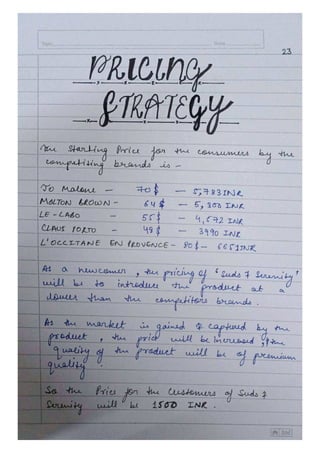 23
PRICING
STRATEGY
The Starting Price for the consumers by the
competiting brands is -
Jo Malone - 70 $ - 5,783 INR
MOLTON BROWN - 64 $ - 5,300 INR
LE-LABO - 55 $ - 4,572 INR
CLAUS PORTO - 48 $ - 3990 INR
L'OCCITANE EN PROVENCE - 80 $ - 6651 INR
As a newcomer, the pricing of 'Suds & Serenity'
will be to introduce the product at a
lower than the competitors brands.
As the market is gained & captured by the
product, the price will be increased, & the
quality of the product will be of premium
quality.
So the Price for the customers of Suds &
Serenity will be 1500 INR.